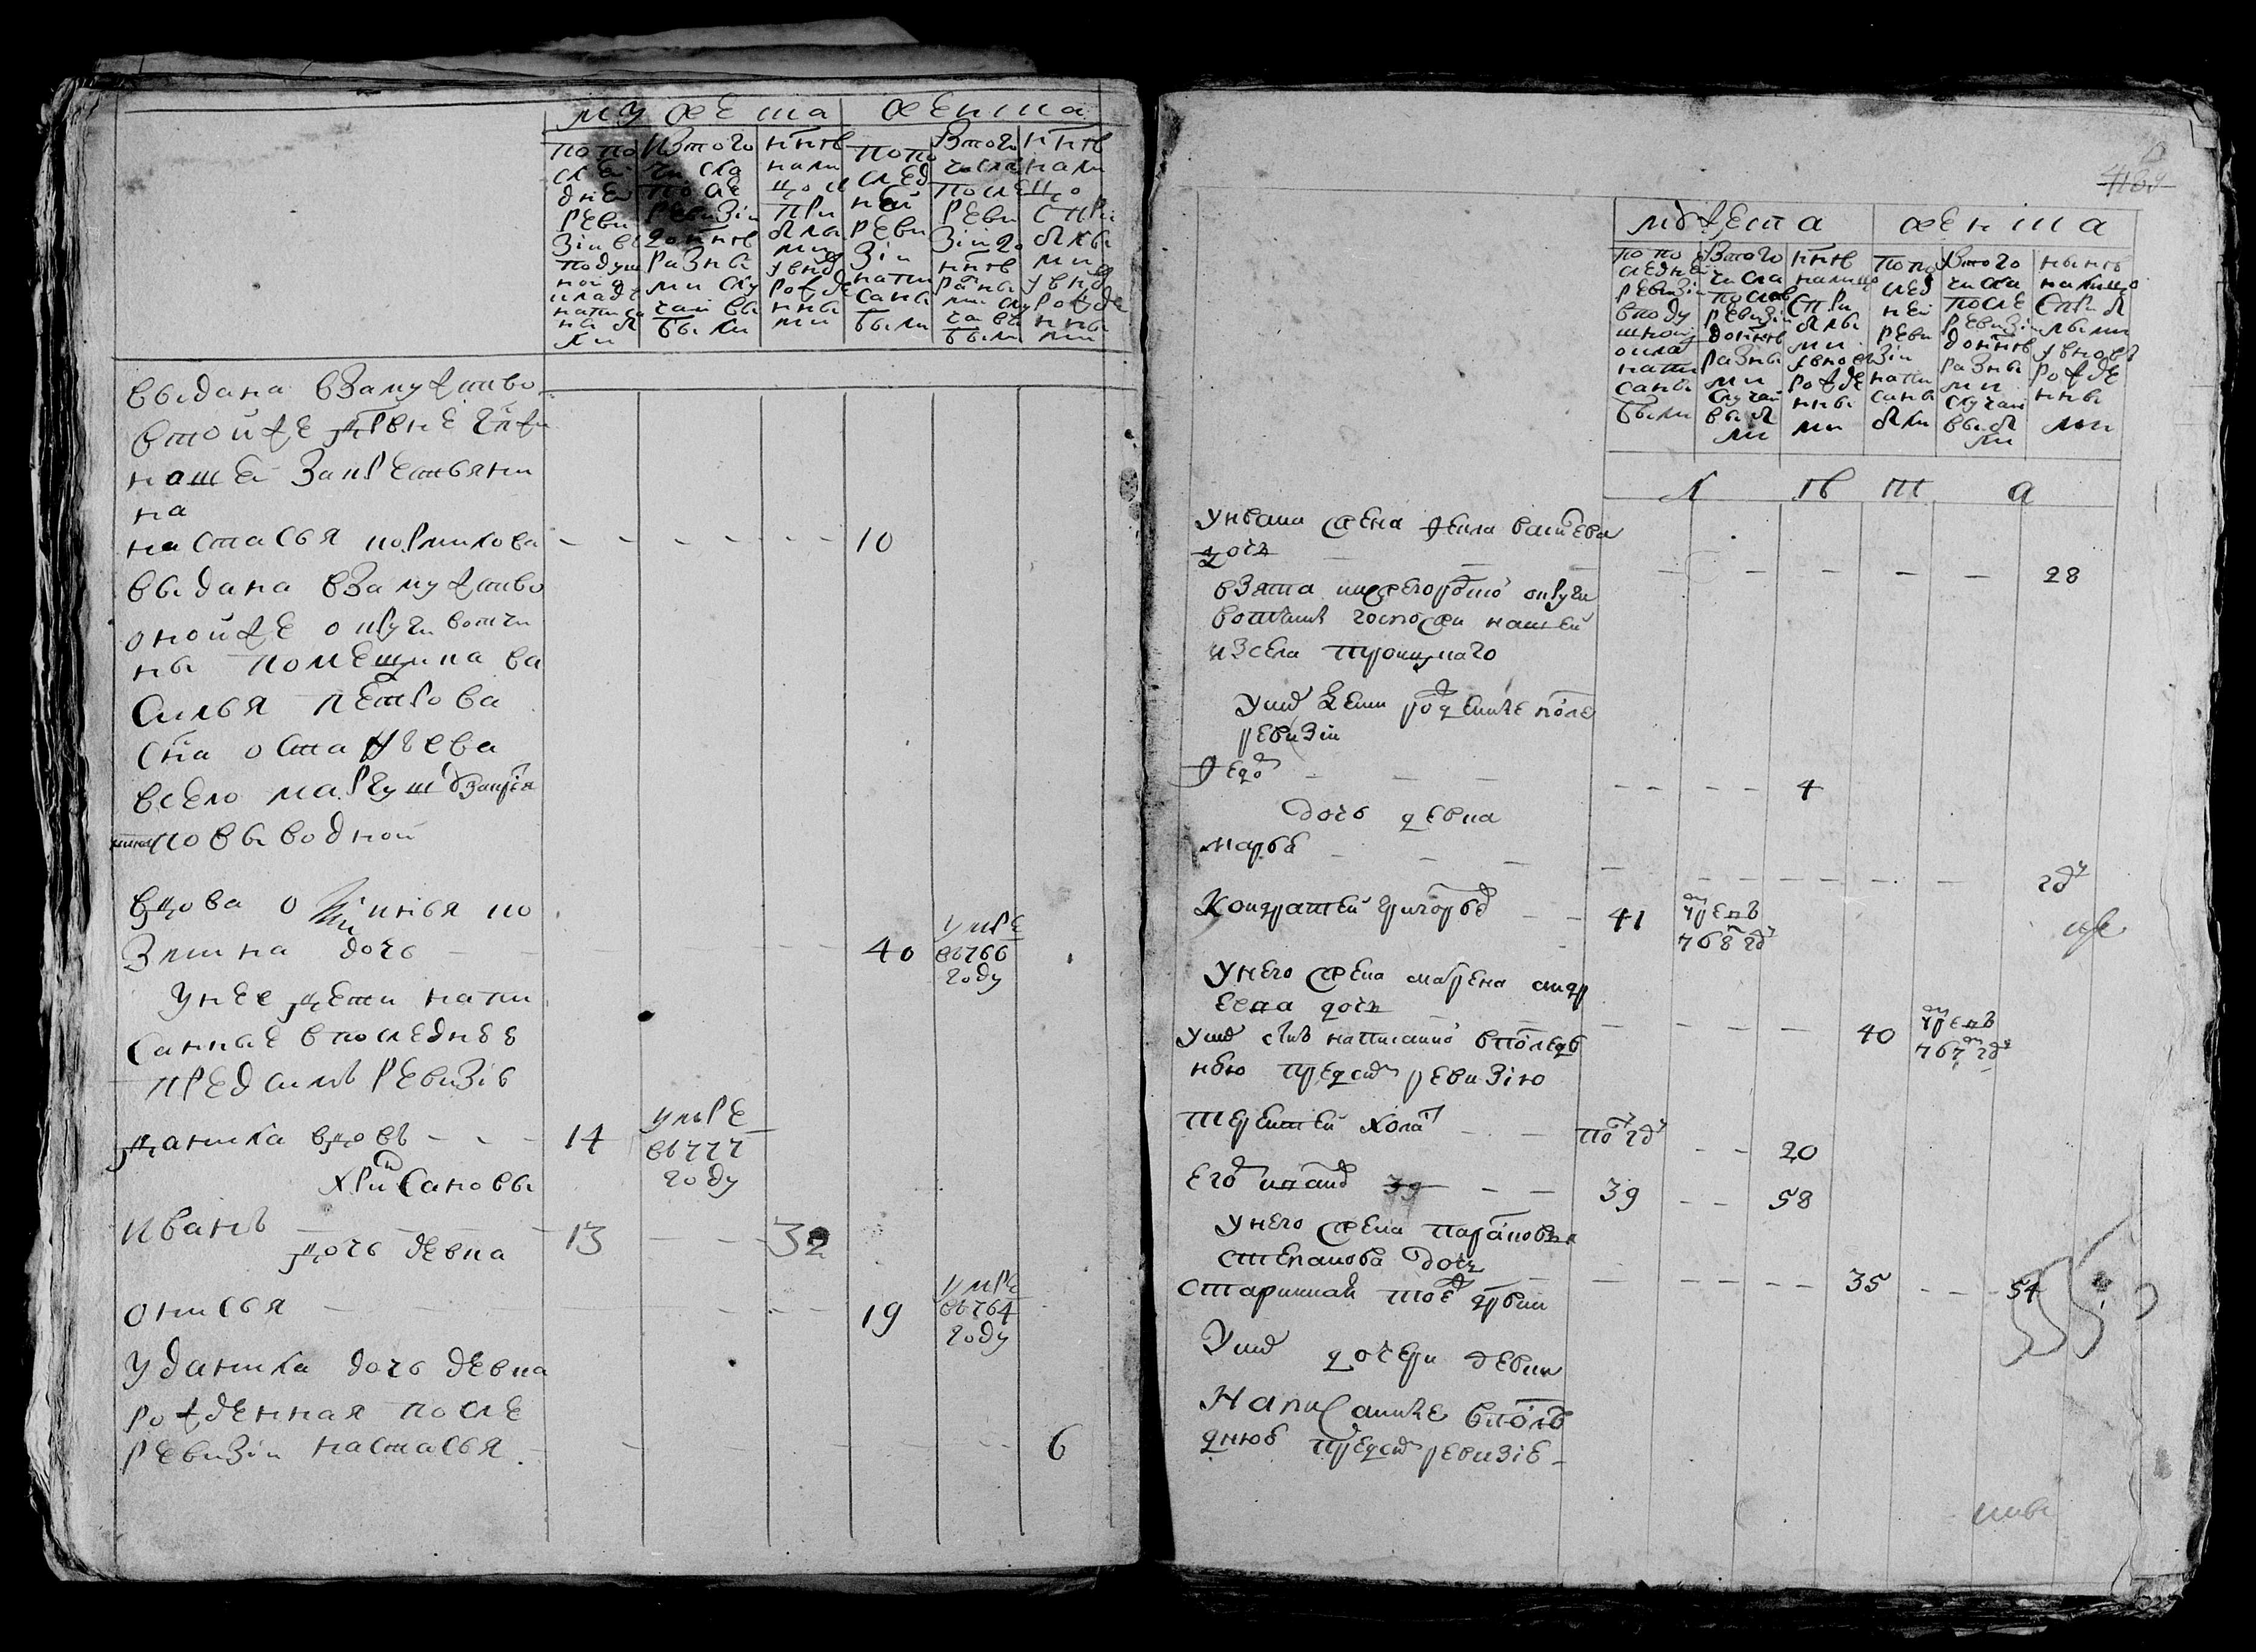 мужеска женска
по по
следней
ревизіи въ
подуш
ной
окладъ
написа
ны бы
ли
Ис того
числа
после
ревизіи
до ныне
разны
ми слу
чаи вы
были
ныне
нали
цо с
при
былы
ми
и вновь
рожде
нны
ми
по по
след
ней
реви
зіи
напи
саны
были
Ис того
числа
после
реви
зіи до
ныне
разны
ми слу
чаи вы
были
ныне
нали
цо
с при
былы
ми
и вновь
рожде
нны
ми
выдана взамужство
в той же дрвне
нашей за крестьяни
на
настасья кормилова - - - - - - 10
выдана взамужство
оной же округи вотчи
ны помещика ва
силья петрова
сна остафьева
в село
по выводной
вдова о кинья ко
змина дочь - - 40 умре
въ 766
году
у нее дети напи
санные в последнеѣ
предсимъ ревизіѣ
данилка вдовъ - - - 14 умре
въ 777
году
хрисановы
иванъ 13 - - 32
дочь девка
онисья - - - 19 умре
въ 764
году
у данилка дочь девка
рожденная после
ревизіи настасья - - - - 6
мужеска женска
по по
следней
ревизіи
в поду
шной
оклад
напи
саны
были
Ис того
числа
после
ревизіи
до ныне
разны
ми
случаи
выбы
ли
ныне
налицо
с при
былы
ми
и вновь
рожде
нны
ми
по по
след
ней
реви
зіи
напи
саны
были
Ис того
числа
после
ревизіи
до ныне
разны
ми
случаи
выбы
ли
ныне
налицо
с приб
ылыми
и вновь
рожде
нны
ми
л ѣ т а
у ивана жена фекла васильева
дочь - - - - - - 28
взята нижегородской округи
вотчины господи нашей
из села троицкаго
у них дети рожденные после
ревизіи
Федор - - - - - 4
дочь девка
марѳа - - - - - - год
Кондратей григорьев - - 41 умре в
768 году
у него жена матрена андр
еева дочь - - - - 40 умре в
767 году
у них сын написанной в послед
нею пред сим ревизію
терентей холост - - пол году - - 20
егор иванов 39 - - 39 - - 58
у него жена парасковья
степанова дочь
старинная той дрвни - - - - 35 - - - 54
у них дочери девки
Написанные в после
днюю пред сим ревизіѣ -